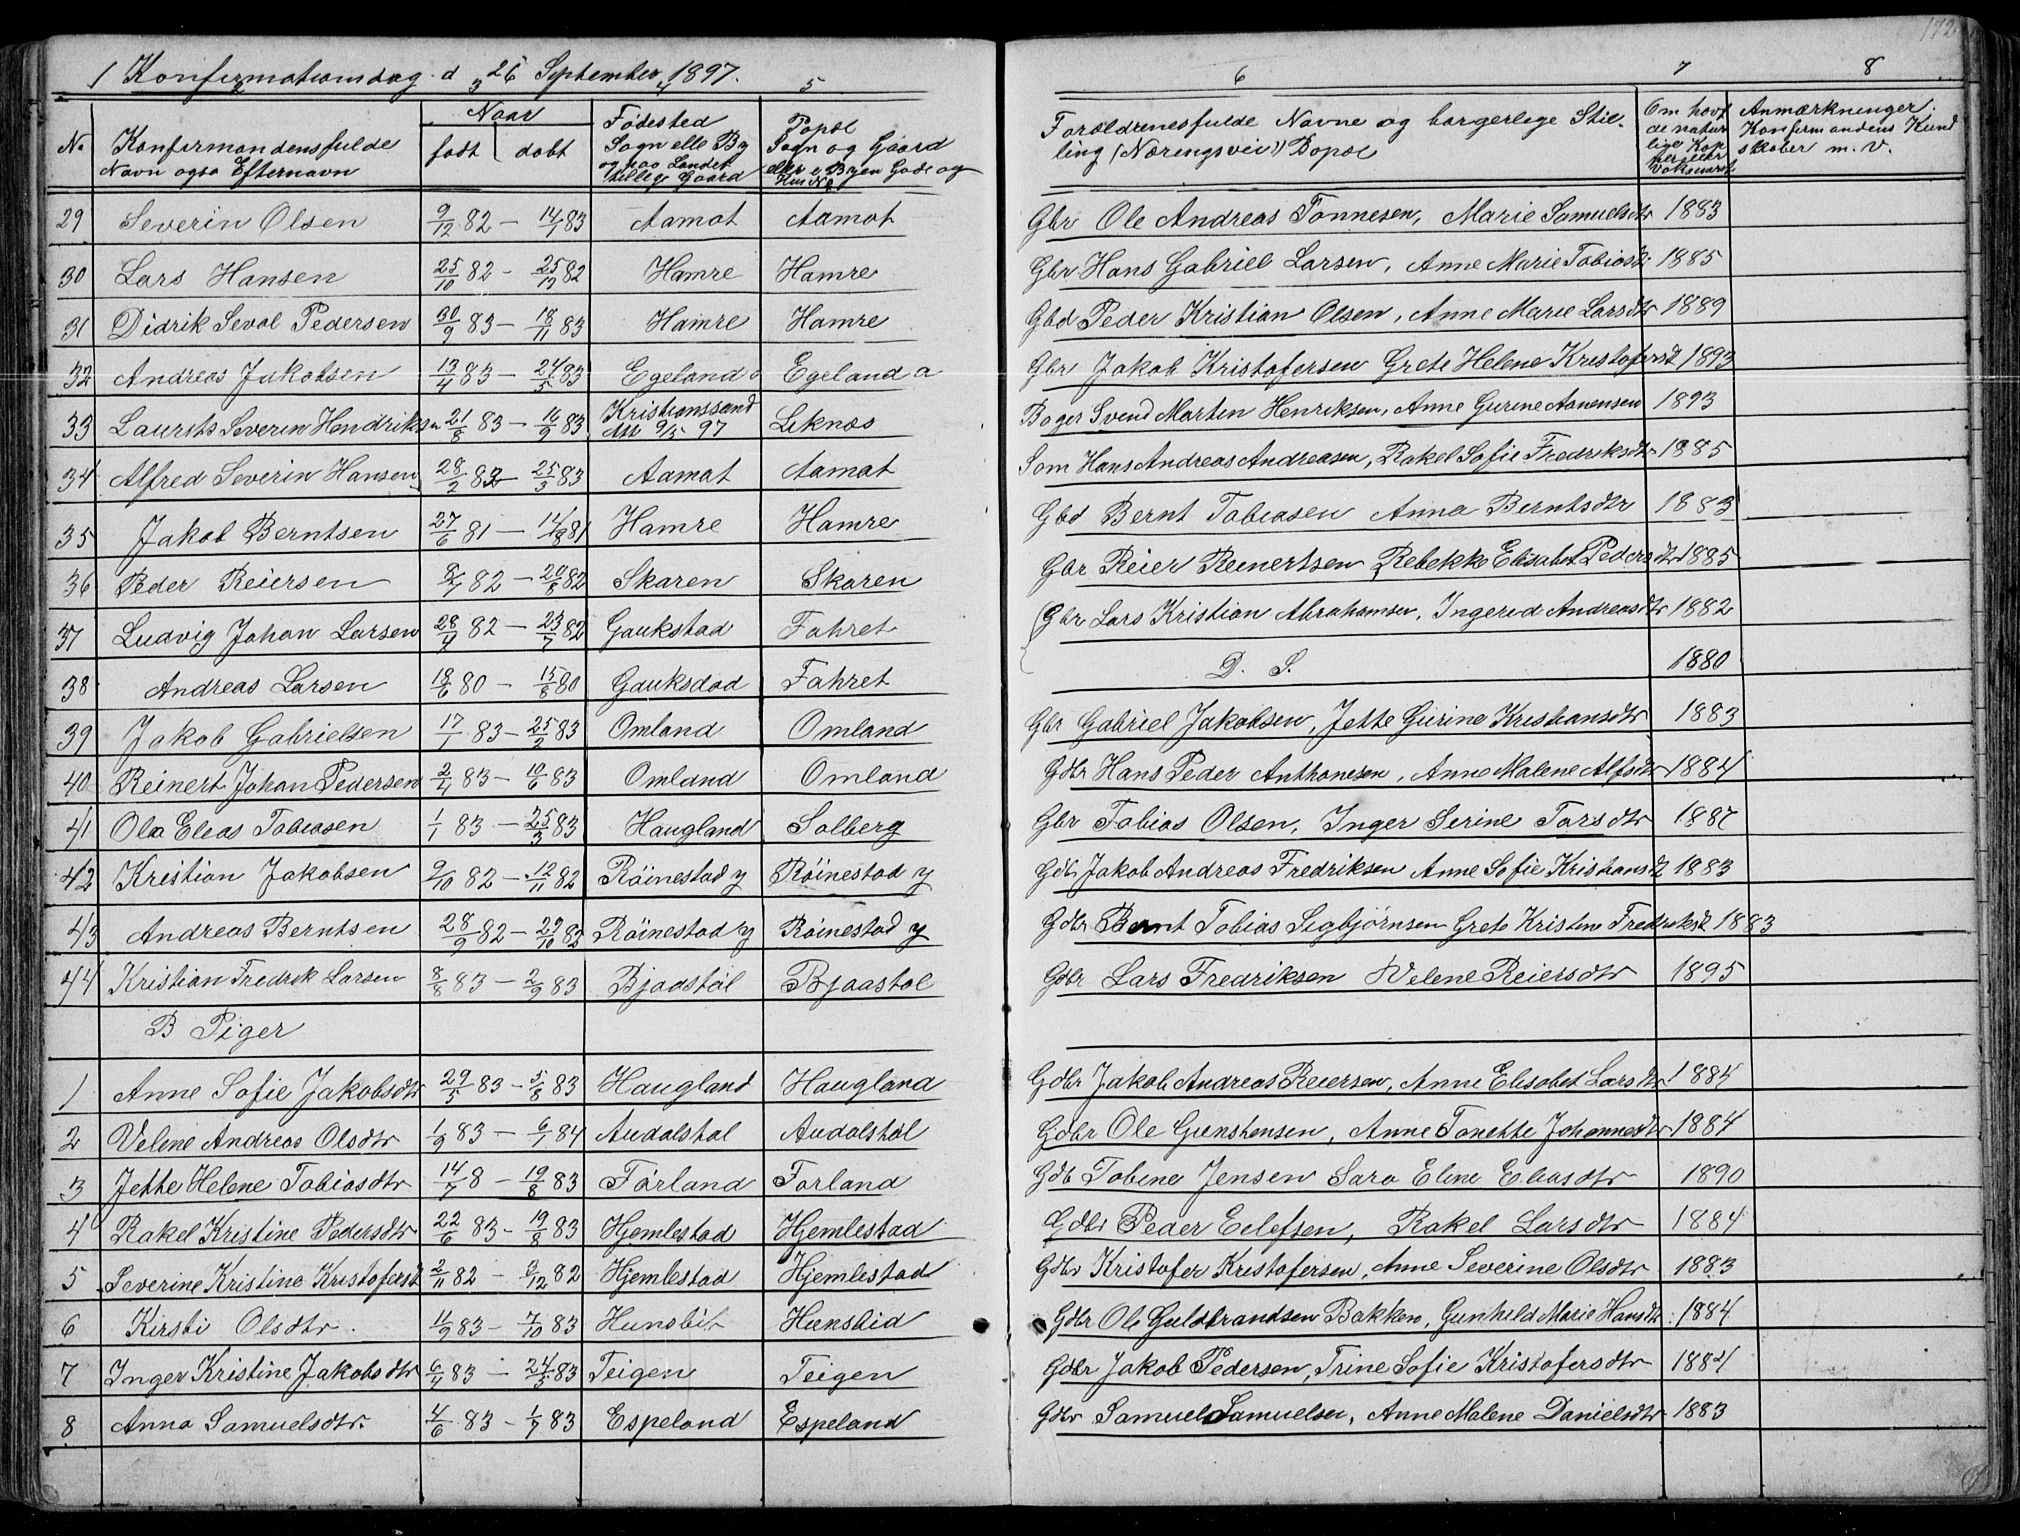 172
1 Konfirmationsdag d 26 September 1897.
2 3 4 5 6 7 8
No Konfirmandensfulde Navn ogsa Efternavn
Naar
født døbt
Fødested Sogn elle By og paa Landet tillige Gaard
Bopæl Sogn og Gaard eller i Byen Gade og Hus No
Forældrenesfulde Navne og borgerlige Stilling (Næringsvei) Bopæl
Om havt de naturlige Kopper eller Vaksineret
Anmærkninger. Konfirmandens Kundskaber m. v.
29 Severin Olsen 9/12 82 – 14/1 83 Aamot Aamot Gbr Ole Andreas Tønnesen, Marie Samuelsdtr 1883
30 Lars Hansen 25/10 82 – 25/12 82 Hamre Hamre Gbr Hans Gabriel Larsen, Anne Marie Tobiasd. 1885
31 Didrik Seval Pedersen 30/9 83 – 18/11 83 Hamre Hamre Gbd Peder Kristian Olsen, Anne Marie Larsdtr 1889
32 Andreas Jakobsen 13/4 83 – 24/5 83 Egeland a Egeland a Gbr Jakob Kristofersen Grete Helene Kristofersd 1893
33 Laurits Severin Hendriksn 21/8 83 – 16/9 83 Kristianssand att 9/5 97 Leknes Bager Svend Martin Henriksen, Anne Gurine Aanensen 1893
34 Alfred Severin Hansen 28/2 83 – 25/3 83 Aamot Aamot Søm Hans Andreas Andreasen, Rakel Sofie Fredriksdtr 1885
35 Jakob Berntsen 27/6 81 – 14/8 81 Hamre Hamre Gbd Bernt Tobiasen Anna Berntsdtr 1883
36 Peder Reiersen 8/7 82 – 20/8 82 Skaren Skaren Gbr Reier Reinertsen Rebekke Elisabet Pedersdtr 1885
37 Ludvig Johan Larsen 28/4 82 – 23/7 82 Gaukstad Fahret Gbr Lars Kristian Abrahamsen, Ingerid Andreasdtr 1882
38 Andreas Larsen 18/6 80 – 15/8 80 Gauksdad Fahret D. S. 1880
39 Jakob Gabrielsen 17/1 83 – 25/2 83 Omland Omland Gbr Gabriel Jakobsen, Jette Gurine Kristiansdtr 1883
40 Reinert Johan Pedersen 2/4 83 – 10/6 83 Omland Omland Gdbr Hans Peder Anthonesen, Anne Malene Alfsdtr 1884
41 Ola Elias Tobiasen 1/1 83 – 25/3 83 Haugland Solberg Gbr Tobias Olsen, Inger Serine Tarsdtr 1887
42 Kristian Jakobsen 9/10 82 – 12/11 82 Röinestad y Röinestad y Gdb Jakob Andreas Fredriksen Anne Sofie Kristiansd 1883
43 Andreas Berntsen 28/9 82 – 29/10 82 Röinestad y Röinestad y Gdbr Bernt Tobias Sigbjørnsen Grete Kristine Fredriksd 1883
44 Kristian Fredrik Larsen 8/8 83 – 2/9 83 Bjaastøl Bjaastøl Gdbr Lars Fredriksen Velene Reiersdtr 1895
B Piger
1 Anne Sofie Jakobsdtr 29/5 83 – 5/8 83 Haugland Haugland Gdbr Jakob Andreas Reiersen, Anne Elisabet Larsdtr 1884
2 Velene Andreas Olsdtr 1/9 83 – 6/1 84 Audalstøl Audalstøl Gdbr Ole Gunstensen, Anne Tonette Johannesdtr 1884
3 Jette Helene Tobiasdtr 14/7 8 – 19/8 83 Førland Førland Gdb Tobine Jensen Sara Eline Eliasdtr 1890
4 Rakel Kristine Pedersdtr 22/6 83 – 19/8 83 Hjemlestad Hjemlestad Gdbr Peder Eilefsen, Rakel Larsdtr 1884
5 Severine Kristine Kristofersd 2/11 82 – 3/12 82 Hjemlestad Hjemlestad Gdbr Kristofer Kristofersen, Anne Severine Olsdtr 1883
6 Kirsti Olsdtr. 11/9 83 – 7/10 83 Hunsbit Hunsbid Gdbr Ole Guldbrandsen Bakken, Gunhild Marie Hansdtr. 1884
7 Inger Kristine Jakobsdtr 6/4 83 – 24/5 83 Teigen Teigen Gdbr Jakob Pedersen, Trine Sofie Kristofersdtr 1884
8 Anna Samuelsdtr. 4/6 83 – 1/7 83 Espeland Espeland Gdbr Samuel Samuelsen, Anne Malene Danielsdtr 1883